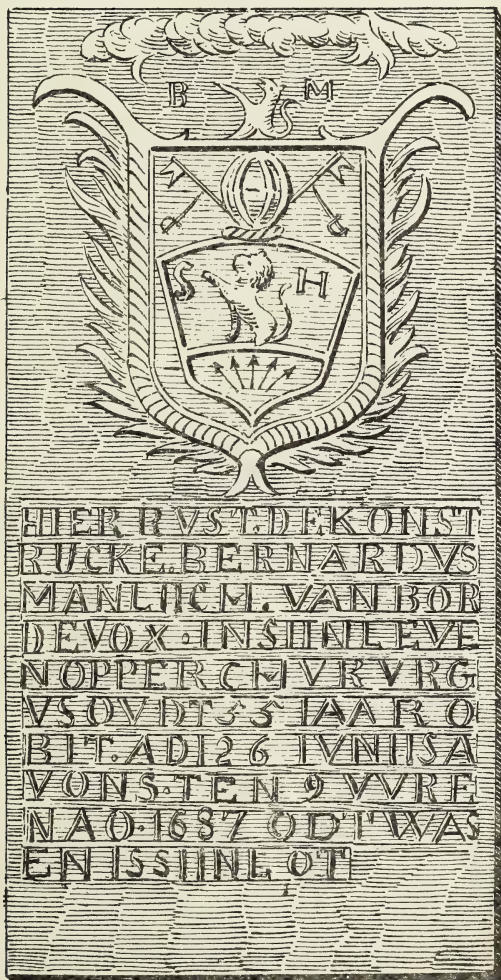 B M
S H
HIER RVST.DEKONST
RIICKE.BERNARDVS
MANLIICH. VAN BOR
DEVOX.INSIINLEVE
NOPPERCHIVRVRG
VSOVDT 55 IAARO
BIT.ADI26 IVNIISA
VONS.TEN 9 VVRE
NAO.1687 ODTWAS
EN ISSIINLOT